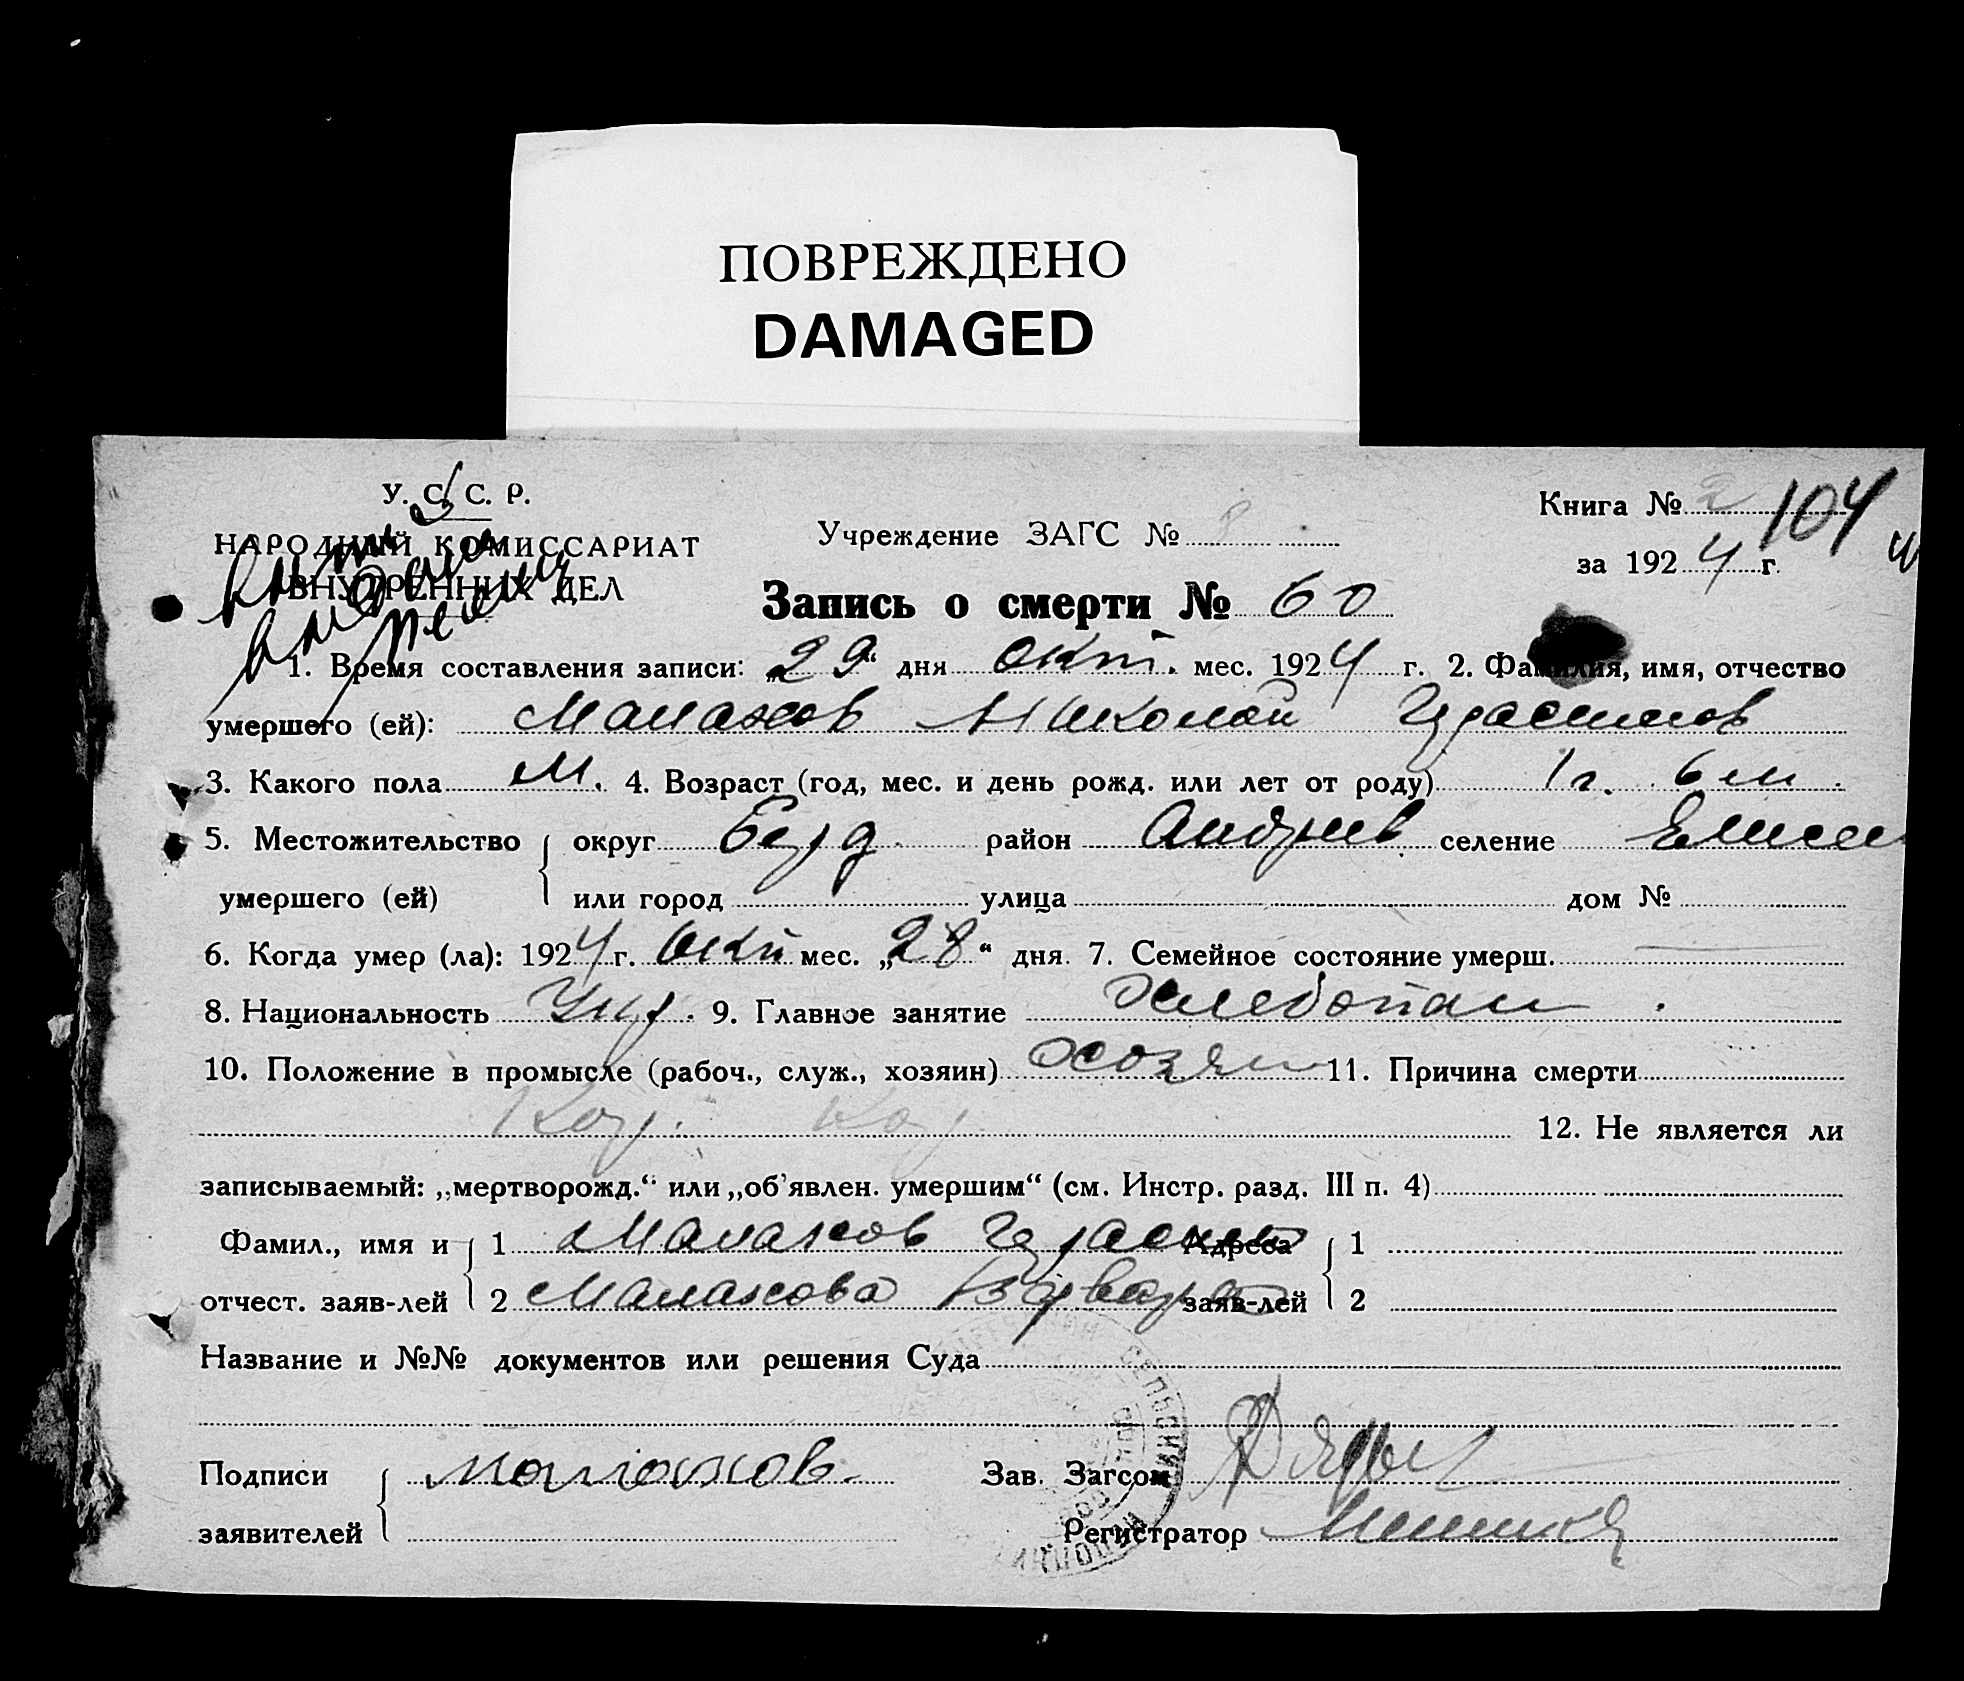 ПОВРЕЖДЕНО
DAMAGED
У. С. С. Р.
НАРОДНЫЙ КОМИССАРИАТ
ВНУТРЕННИХ ДЕЛ
Учреждение ЗАГС № 8
Книга № 2 104
за 1924 г.
Запись о смерти № 60
1. Время составления записи: „29“ дня окт. мес. 1924 г. 2. Фамилия, имя, отчество
умершего (ей): Малахов Николай Герасимов
3. Какого пола М. 4. Возраст (год, мес. и день рожд. или лет от роду) 1 г. 6 м.
5. Местожительство округ Берд. район Андриев селение Елисе
умершего (ей) или город улица дом №
6. Когда умер (ла): 1924 г. Окт мес. „28“ дня. 7. Семейное состояние умерш.
8. Национальность Укр. 9. Главное занятие Хлебопаш.
10. Положение в промысле (рабоч., служ., хозяин) хозяин 11. Причина смерти
Кор. Кор
12. Не является ли
записываемый: „мертворожд.“ или „об'явлен. умершим“ (см. Инстр. разд. III п. 4)
Фамил., имя и 1 Малахов Герасим Адреса 1
отчест. заяв-лей 2 Малахова Варвара заяв-лей 2
Название и №№ документов или решения Суда
Подписи малахов. Зав. Загсом
заявителей Регистратор